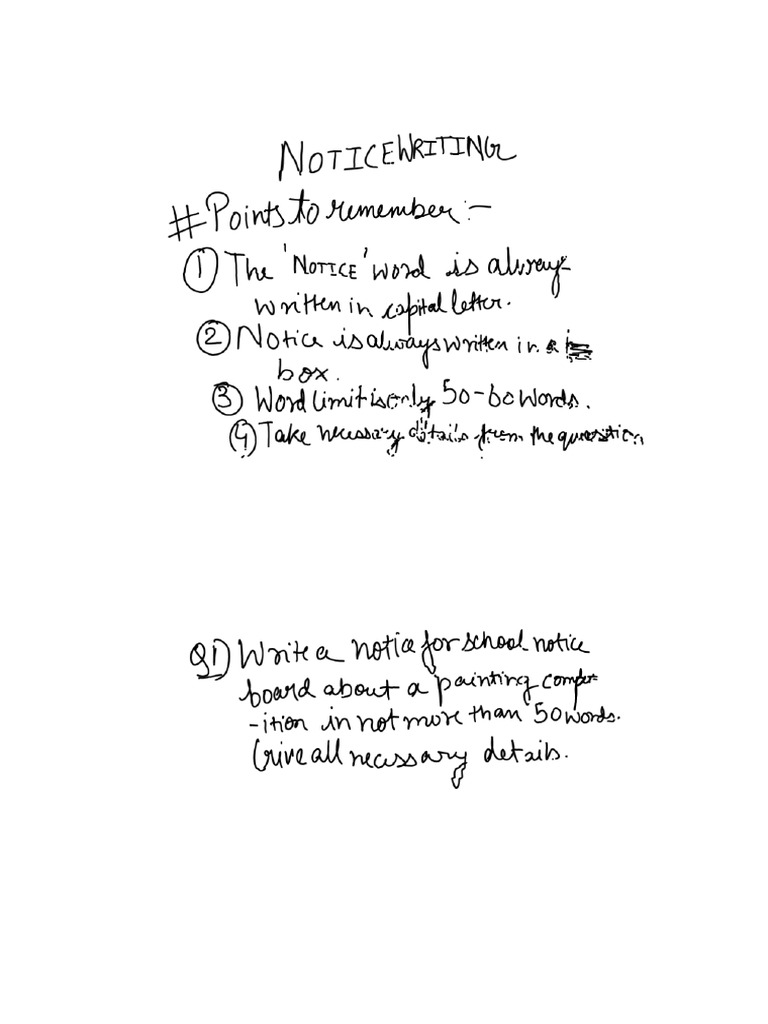 NOTICE WRITING
# Points to remember :-
① The 'NOTICE' word is always
written in capital letter.
② Notice is always written in a
box.
③ Word limit is only 50-60 words.
④ Take necessary details from the question
Q1) Write a notice for school notice
board about a painting compet
-ition in not more than 50 words.
Give all necessary details.